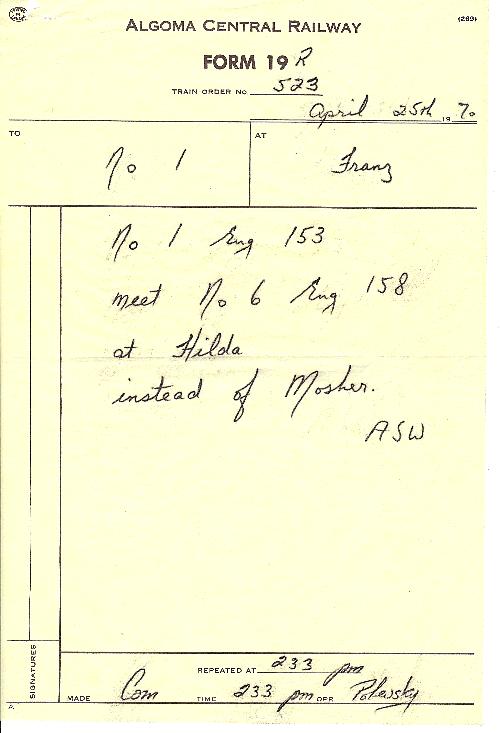 (269)
ALGOMA CENTRAL RAILWAY
FORM 19 R
TRAIN ORDER NO. 523
April 25th 1970
TO
No 1
AT
Franz
No 1 Eng 153
meet No 6 Eng 158
at Hilda
instead of Mosher.
ASW
SIGNATURES
REPEATED AT 233 pm
MADE Com TIME 233 pm OPR Polewsky
A